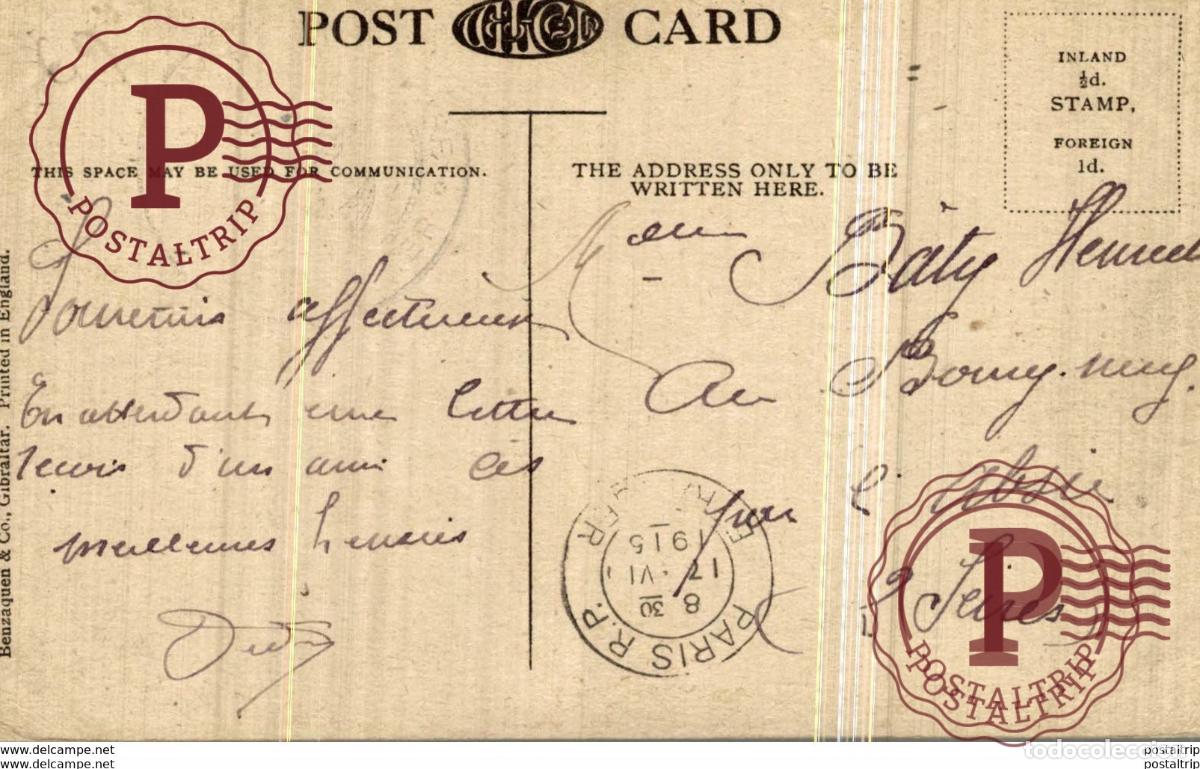 POST CARD
INLAND
½d.
STAMP,
FOREIGN
1d.
THIS SPACE MAY BE USED FOR COMMUNICATION.
THE ADDRESS ONLY TO BE
WRITTEN HERE.
Benzaquen & Co., Gibraltar. Printed in England.
Souvenirs affectueux
En attendant une lettre
d'un ami
meilleures
Báty
Au Bourg-neuf
par l'Absie
2 Sèvres
PARIS R.P.
8 30
17 VI
1915
P
POSTALTRIP
P
POSTALTRIP
POSTALTRIP
todocoleccion
www.delcampe.net
www.delcampe.net
postaltrip
postaltrip